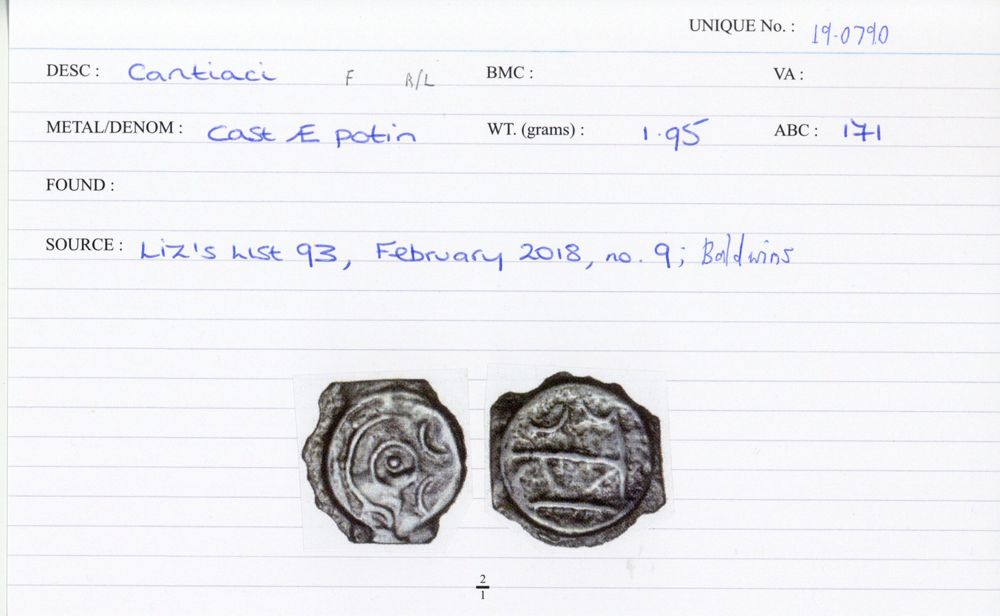 UNIQUE No. : 19-0790
DESC : Cantiaci F R/L BMC : VA :
METAL/DENOM : Cast Æ potin WT. (grams) : 1.95 ABC : 171
FOUND :
SOURCE : Liz's List 93, February 2018, no. 9; Baldwins
2
1